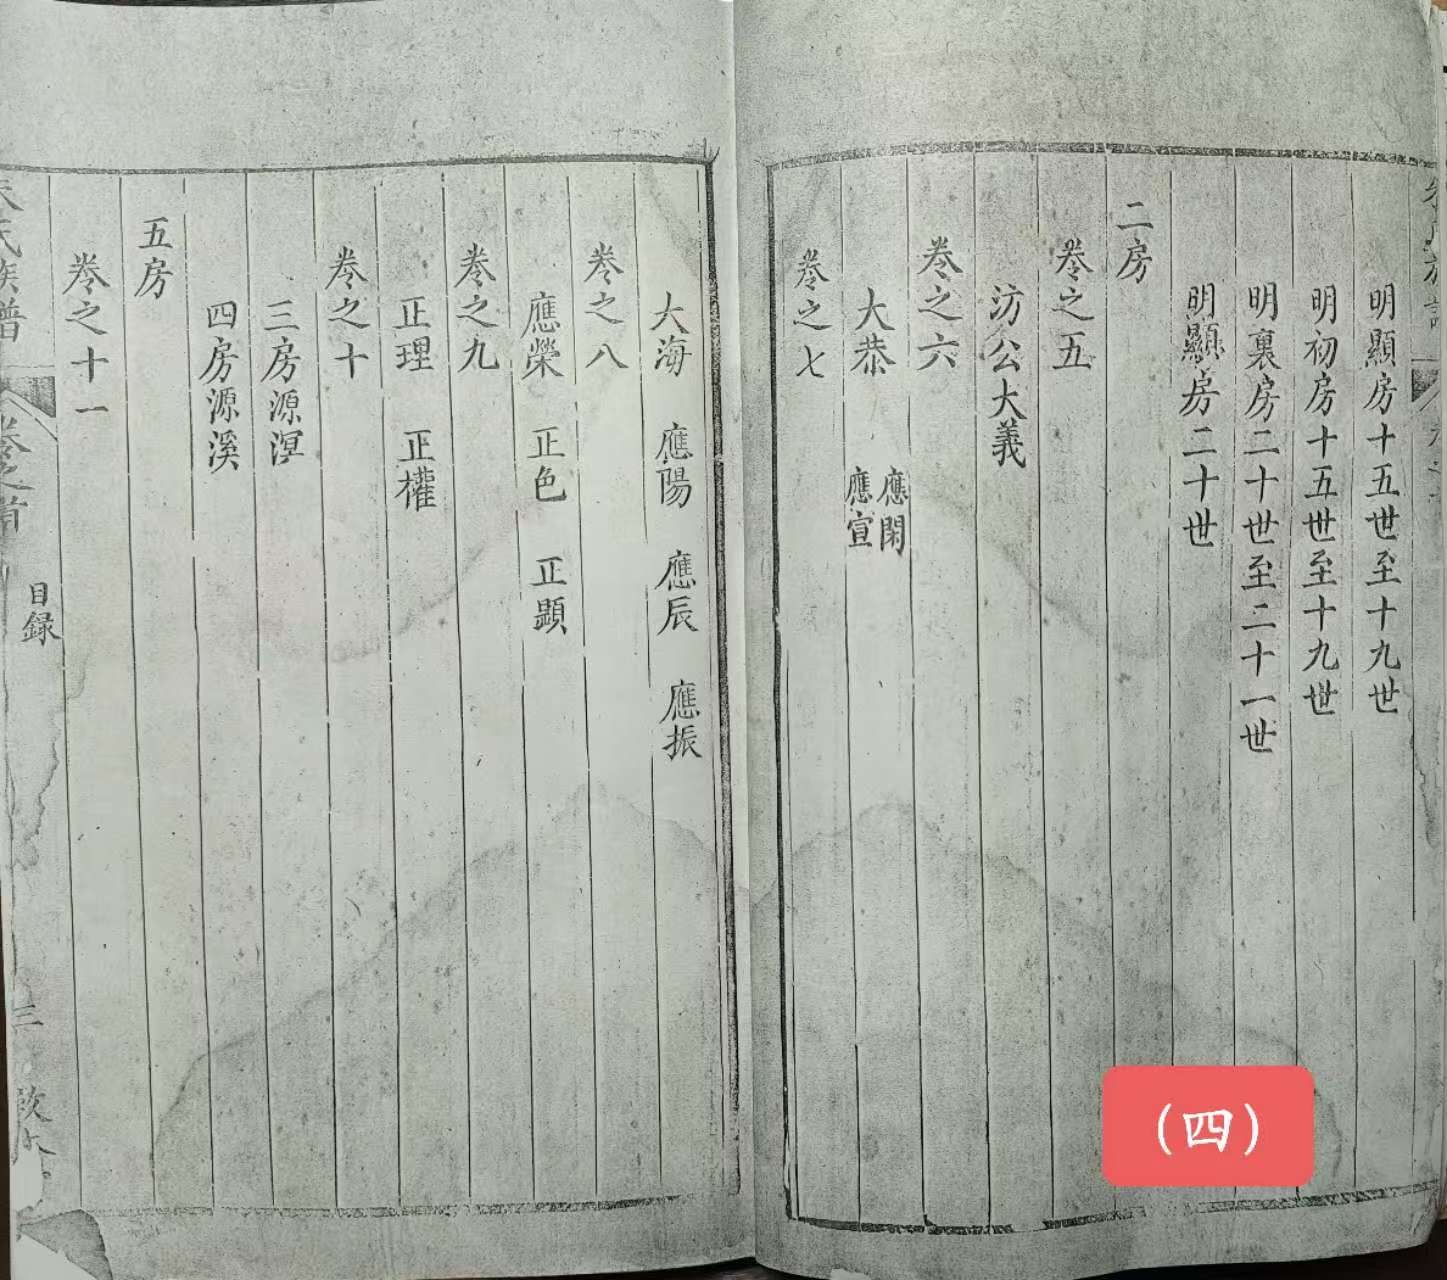 明顯房十五世至十九世
明初房十五世至十九世
明裏房二十世至二十一世
明顯房二十世
二房
卷之五
汸公大義
卷之六
大恭 應閑 應宣
卷之七
大海 應陽 應辰 應振
卷之八
應榮 正色 正顕
卷之九
正理 正權
卷之十
三房源溟
四房源溪
五房
卷之十一
氏族譜 卷之首 目錄 三
(四)